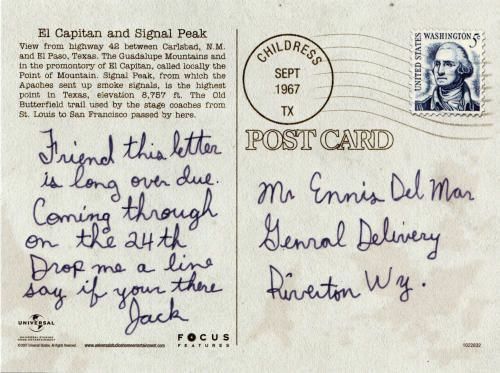 El Capitan and Signal Peak
View from highway 42 between Carlsbad, N.M.
and El Paso, Texas. The Guadalupe Mountains and
in the promontory of El Capitan, called locally the
Point of Mountain. Signal Peak, from which the
Apaches sent up smoke signals, is the highest
point in Texas, elevation 8,757 ft. The Old
Butterfield trail used by the stage coaches from
St. Louis to San Francisco passed by here.
Friend this letter
is long over due.
Coming through
on the 24th
Drop me a line
say if your there
Jack
CHILDRESS
SEPT
1967
TX
UNITED STATES
WASHINGTON 5c
POST CARD
Mr Ennis Del Mar
Genral Delivery
Riverton Wy.
UNIVERSAL
UNIVERSAL STUDIOS
HOME ENTERTAINMENT
©2007 Universal Studios. All Rights Reserved.
www.universalstudioshomeentertainment.com
FOCUS
FEATURES
1022832